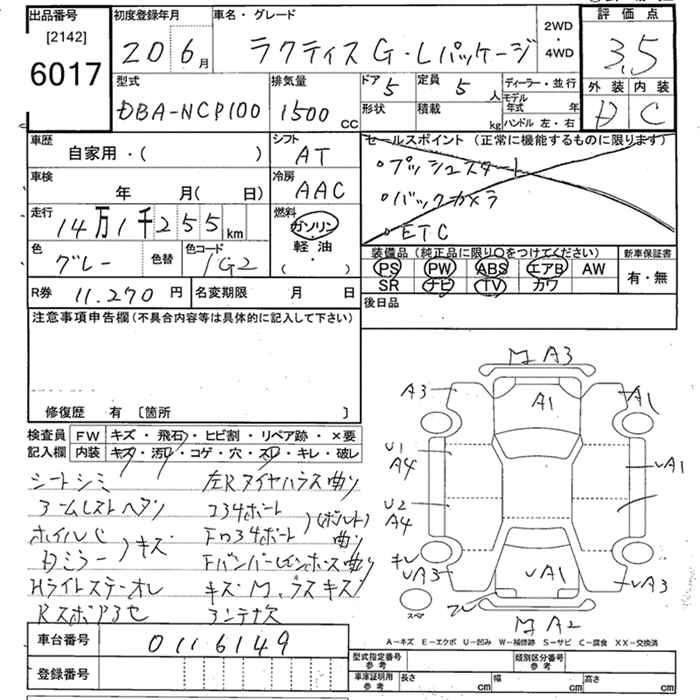 出品番号
[2142]
6017
初度登録年月
20 6月
車名・グレード
ラクティス G・Lパッケージ
2WD
・
4WD
評価点
3.5
外装 内装
D C
型式
DBA-NCP100
排気量
1500 CC
ドア 5
定員 5 人
形状
積載 kg
ディーラー・並行
モデル年式 年
ハンドル 左・右
車歴
自家用・( )
シフト
AT
車検
年 月( 日)
冷房
AAC
走行
14万1千255 km
燃料
ガソリン
・
軽油
・
( )
色
グレー
色替
色コード
1G2
セールスポイント (正常に機能するものに限ります)
・プッシュスタート
・バックカメラ
・ETC
装備品 (純正品に限り○をつけてください)
PS PW ABS エアB AW
SR ナビ TV カワ
新車保証書
有・無
R券 11.270 円
名変期限 月 日
後日品
注意事項申告欄 (不具合内容等は具体的に記入して下さい)
修復歴 有 [箇所 ]
検査員記入欄
FW キズ・飛石・ヒビ割・リペア跡・×要
内装 キズ・汚レ・コゲ・穴・スレ・キレ・破レ
シートシミ
アームレストヘタリ
ホイルC
日ミラー
キズ
Hライトステーオレ
左Rタイヤハウス曲り
コ34ボート
Fロ34ボート
(ボルト)
曲り
キズM、ラスキズ
アンテナ欠
M A3
A3
A1
A1
U1
A4
UA1
U2
A4
キレ
UA3
UA1
UA3
M A2
スペア
A－キズ E－エクボ U－凹み W－補修跡 S－サビ C－腐食 XX－交換済
車台番号
0116149
登録番号
型式指定番号 参考
類別区分番号 参考
車庫証明用 参考
長さ cm
幅 cm
高さ cm